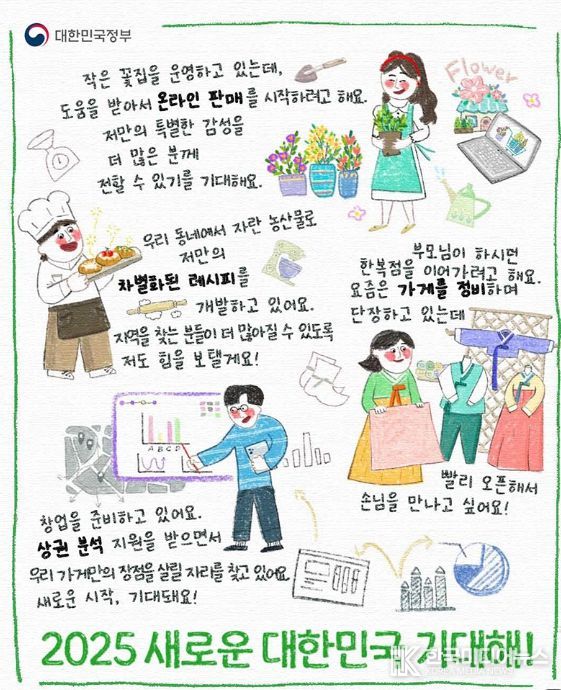 대한민국정부
작은 꽃집을 운영하고 있는데,
도움을 받아서 온라인 판매를 시작하려고 해요.
저만의 특별한 감성을
더 많은 분께
전할 수 있기를 기대해요.
Flower
우리 동네에서 자란 농산물로
저만의
차별화된 레시피를
개발하고 있어요.
지역을 찾는 분들이 더 많아질 수 있도록
저도 힘을 보탤게요!
부모님이 하시던
한복점을 이어가려고 해요.
요즘은 가게를 정비하며
단장하고 있는데
빨리 오픈해서
손님을 만나고 싶어요!
A B C D
창업을 준비하고 있어요.
상권 분석 지원을 받으면서
우리 가게만의 장점을 살릴 자리를 찾고 있어요
새로운 시작, 기대돼요!
2025 새로운 대한민국 기대해!
한국미디어뉴스